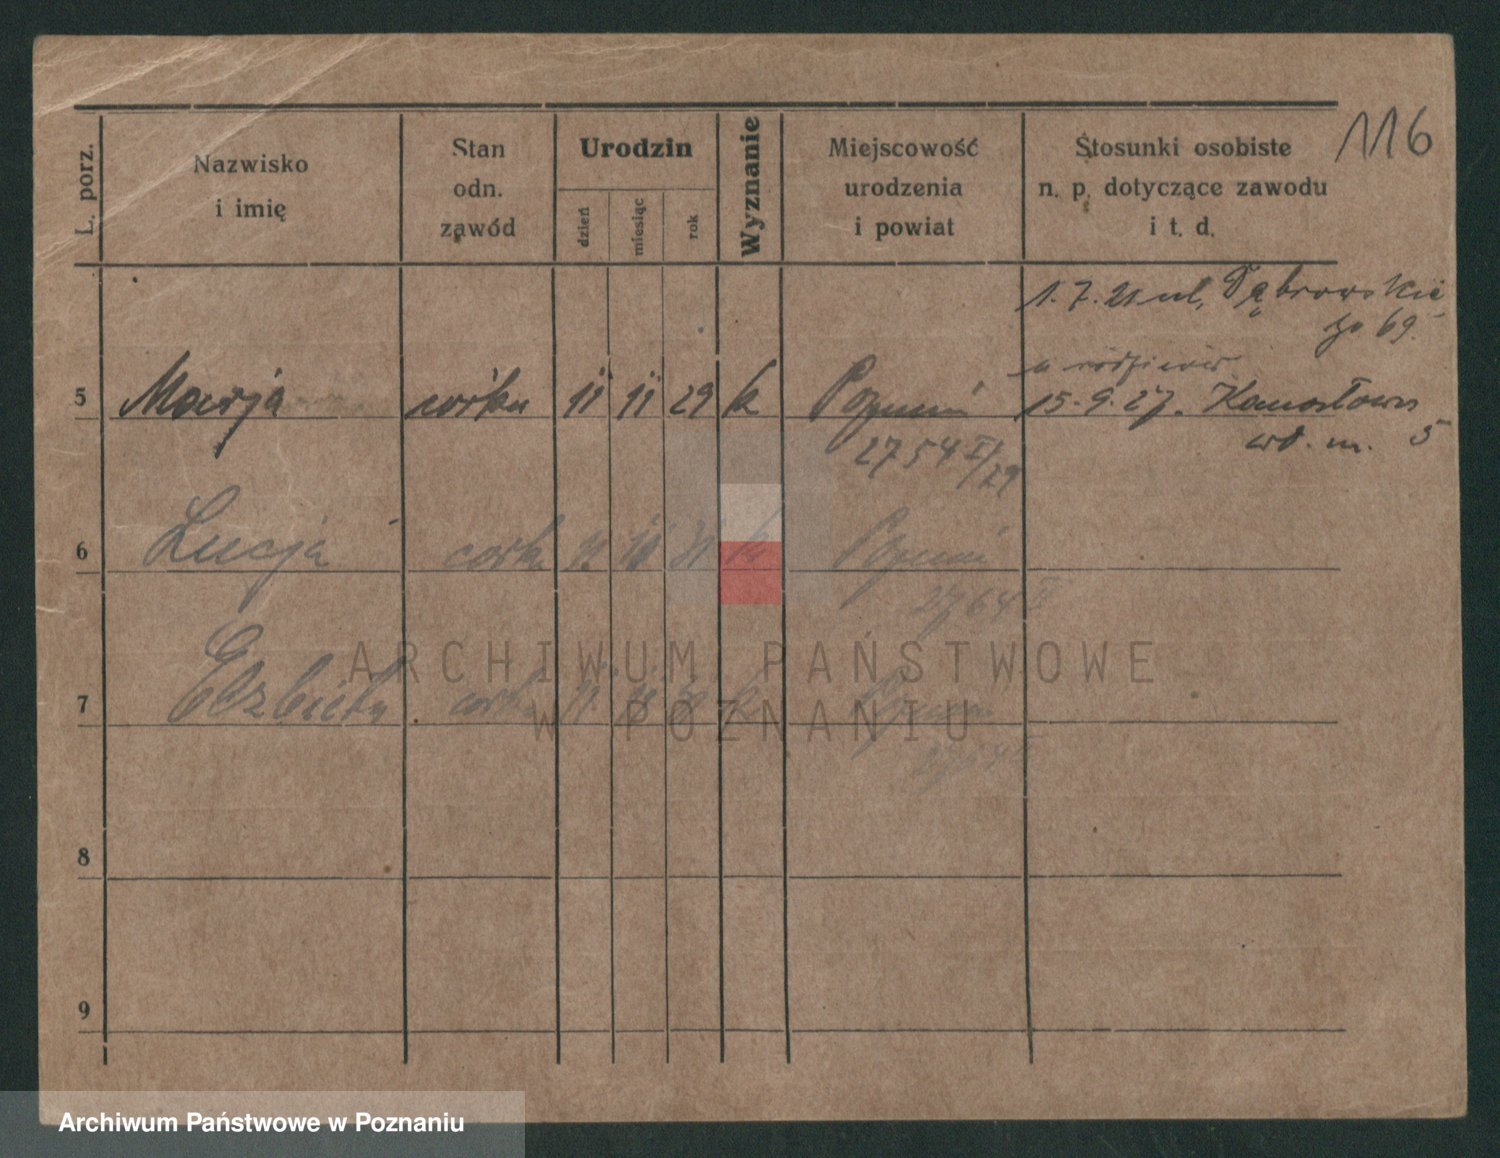 116
L. porz.
Nazwisko
i imię
Stan
odn.
zawód
Urodzin
dzień
miesiąc
rok
Wyznanie
Miejscowość
urodzenia
i powiat
Stosunki osobiste
n. p. dotyczące zawodu
i t. d.
1.7.21 ul. Dąbrowskie
go 69.
u rodziców
5 Marja córka 11 11 29 k Poznań 15.9.27.
2754 II/29
5
6 Lucja córka k Poznań
2764 II
7 Elzbieta córka k Poznań
8
9
ARCHIWUM PAŃSTWOWE
W POZNANIU
Archiwum Państwowe w Poznaniu